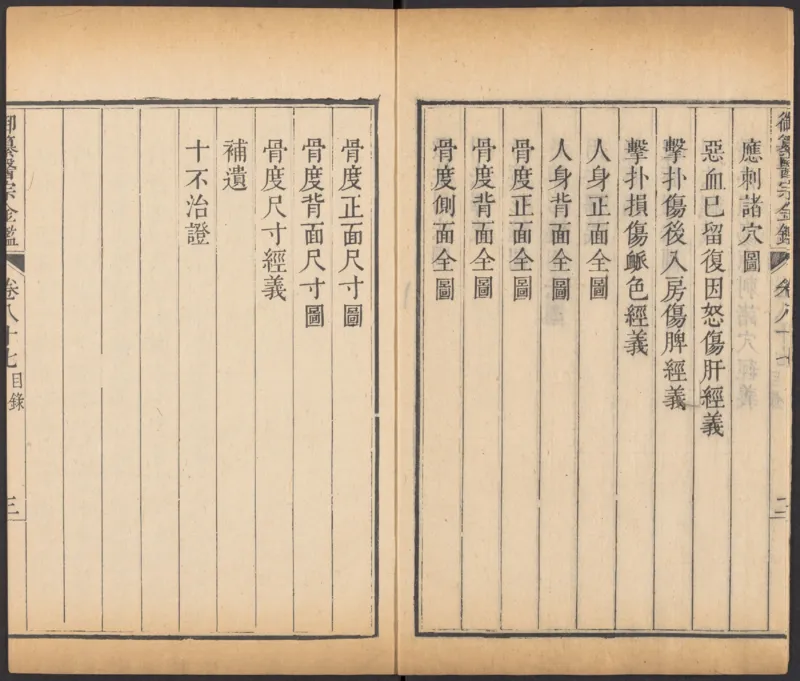 御纂醫宗金鑑
卷八十七
二
應刺諸穴圖
惡血已留復因怒傷肝經義
擊扑傷後入房傷脾經義
擊扑損傷衇色經義
人身正面全圖
人身背面全圖
骨度正面全圖
骨度背面全圖
骨度側面全圖
骨度正面尺寸圖
骨度背面尺寸圖
骨度尺寸經義
補遺
十不治證
御纂醫宗金鑑
卷八十七
目錄
三